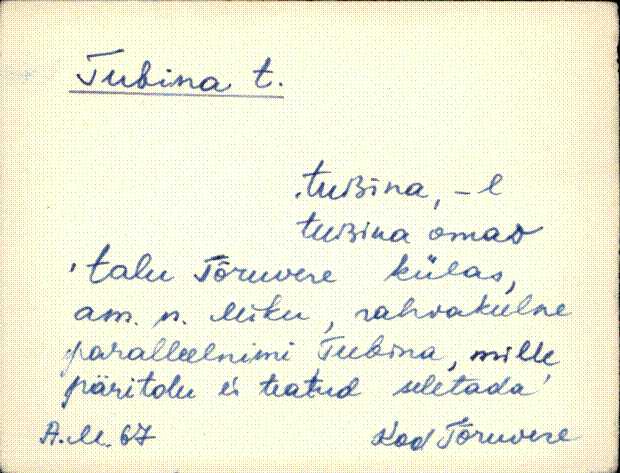 Tubina t.
tuʙina, -l
tuʙina omaᴅ
'talu Tõruvere külas,
am. n. Uiku, rahvakeelne
paralleelnimi Tubina, mille
päritolu ei teatud seletada'
A.M. 67 Kod Tõruvere